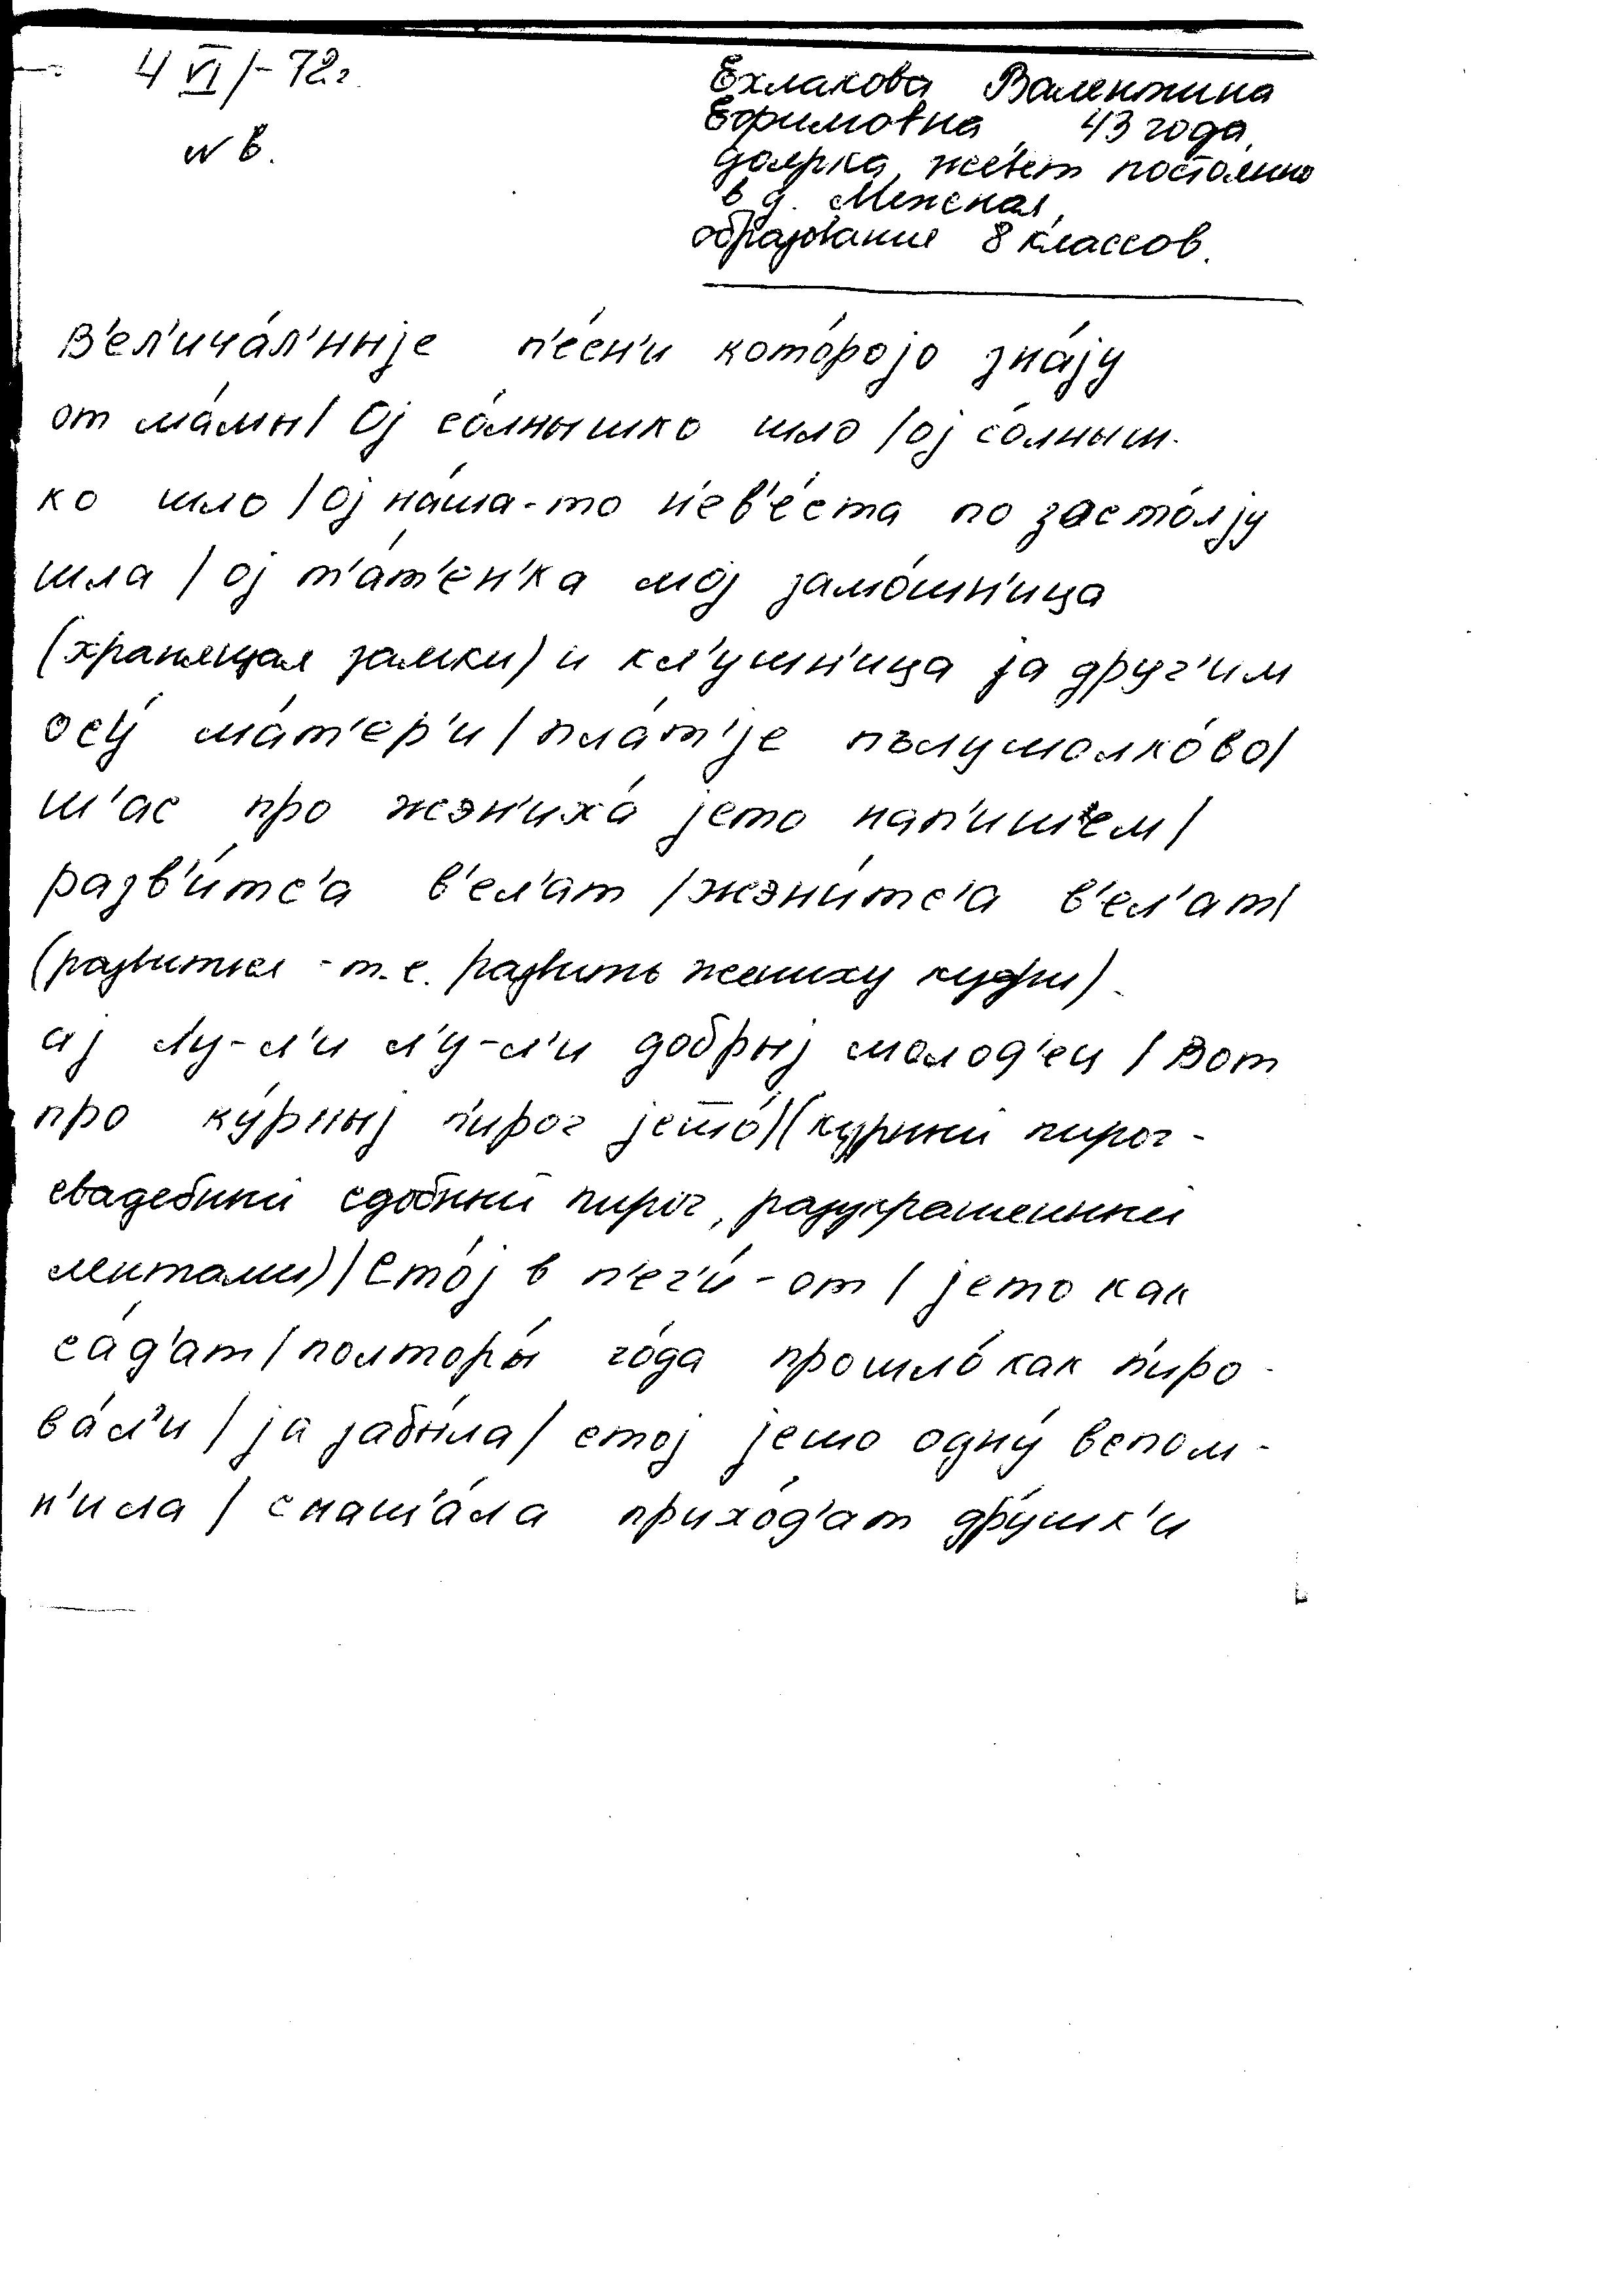 4 VI/-72г.
N в.
Ехлакова Валентина
Ефимовна 43 года,
доярка, живет постоянно
в д. Менская,
образование 8 классов.
в'ел'ича́л'ныjе п'е́сн'и кото́роjо зна́jу
от ма́мы/ Оj со́лнышко шло /оj со́лныш-
ко шло /оj на́ша-то н'ев'е́ста по засто́лjу
шла / оj т'а́т'ен'ка моj замо́шн'ица
(хранящая замки) и кл'у́шн'ица jа друг'им
осу́ ма́т'ер'и / пла́т'jе пълушолко́во/
ш'ас про жэн'иха́ jето нап'ишем/
разв'и́тс'а в'ел'ат /жэни́тс'а в'ел'ат/
(развиться - т.е. развить жениху кудри).
аj лу-л'и л'у-л'и добрыj молод'ец / Вот
про ку́рныj п'иро́г jето́/(курный пирог-
свадебный сдобный пирог, разукрашенный
лентами)/Сто́j в п'еч'и́-от / jето как
са́д'ат/полторы́ го́да прошло́ как п'иро-
ва́л'и / jа забы́ла/ стоj jешо одну́ вспом-
н'ила / снаш'а́ла прихо́д'ат дру́шк'и